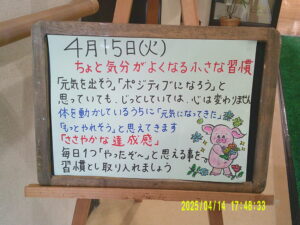 4月15日(火)
ちょと気分がよくなる小さな習慣
「元気を出そう」「ポジティブになろう」と
思っていても、じっとしていては、心は変わりません
体を動かしているうちに「元気になってきた」
「もっとやれそう」と思えてきます
「ささやかな達成感」
毎日1つ「やったぞ〜」と思える事を
習慣とし取り入れましょう
2025/04/14 17:48:33